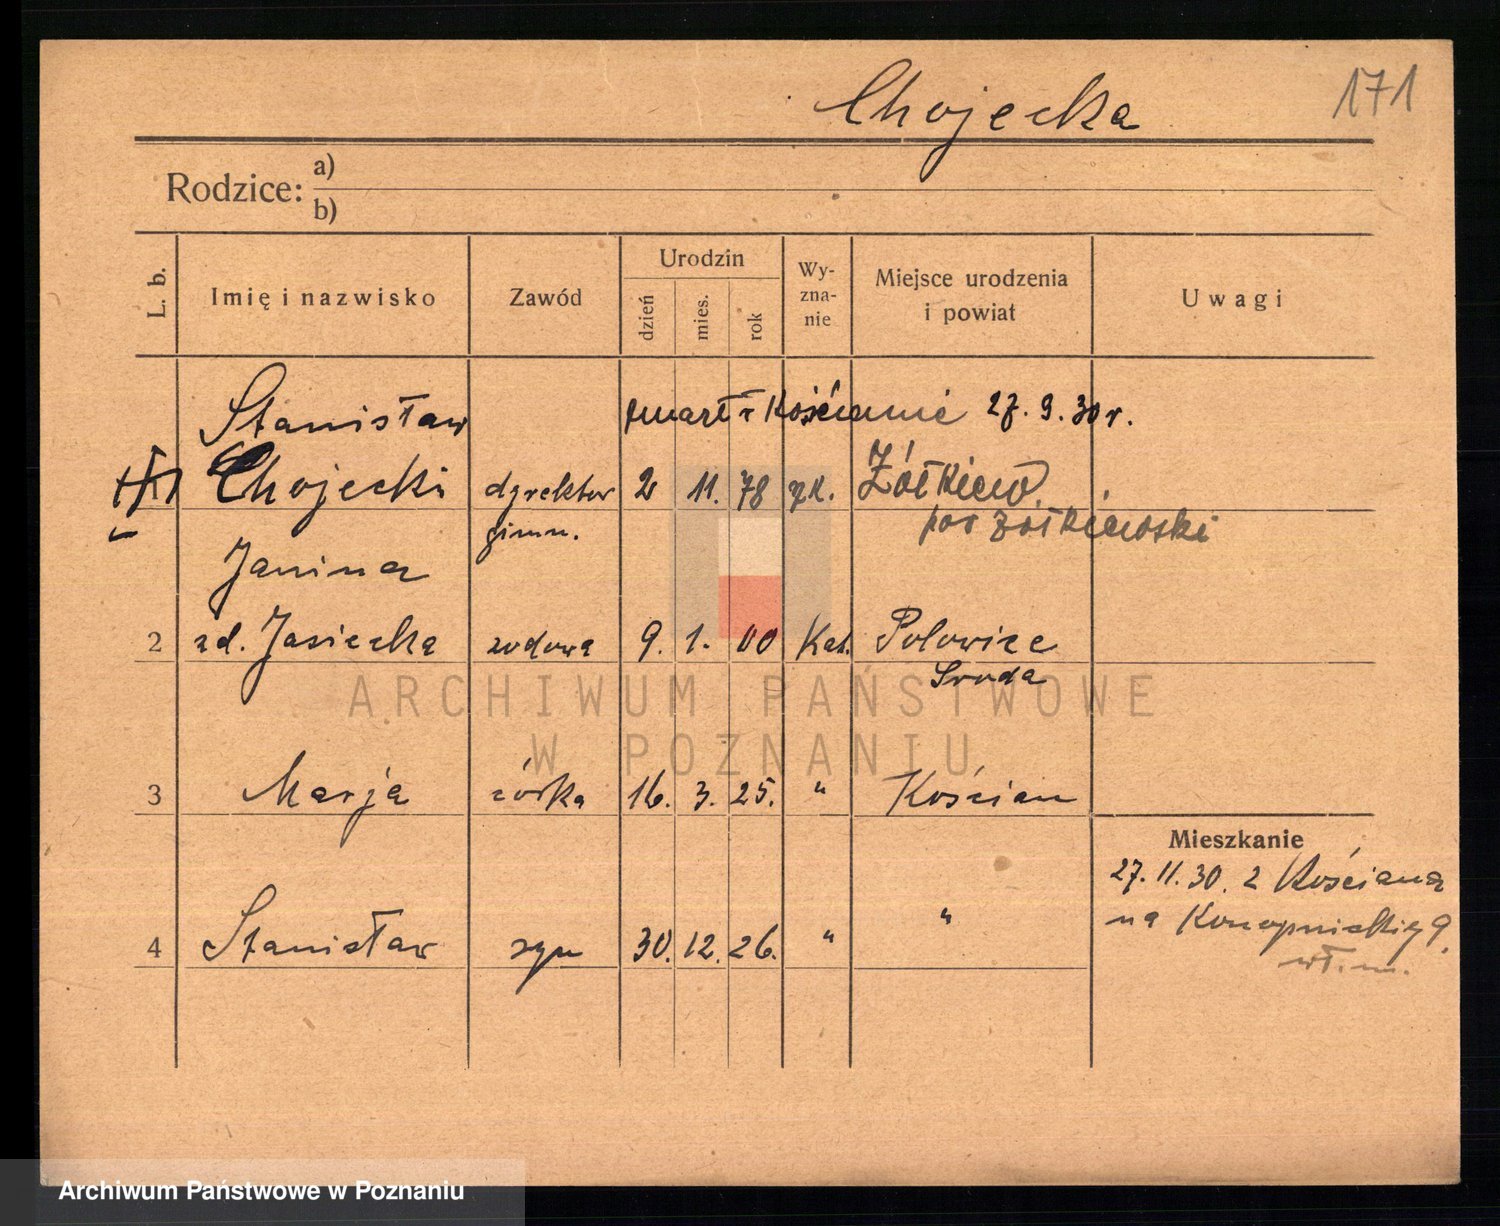 Chojecka
171
Rodzice: a)
b)
L. b.
Imię i nazwisko
Zawód
Urodzin
dzień
mies.
rok
Wy-
zna-
nie
Miejsce urodzenia
i powiat
Uwagi
Stanisław
w Kościanie 27. 9. 30 r.
Chojecki dyrektor 2 11. 78 Żółkiew
gimn. żółkiewski
Janina
2 zd. Jasiecka wdowa 9. 1. 00 Kat. Polowice
Środa
3 Marja córka 16. 3. 25. " Kościan
Mieszkanie
27. 11. 30. z Kościana
na Konopnickiej 9.
4 Stanisław syn 30. 12. 26. " "
ARCHIWUM PAŃSTWOWE
W POZNANIU
Archiwum Państwowe w Poznaniu